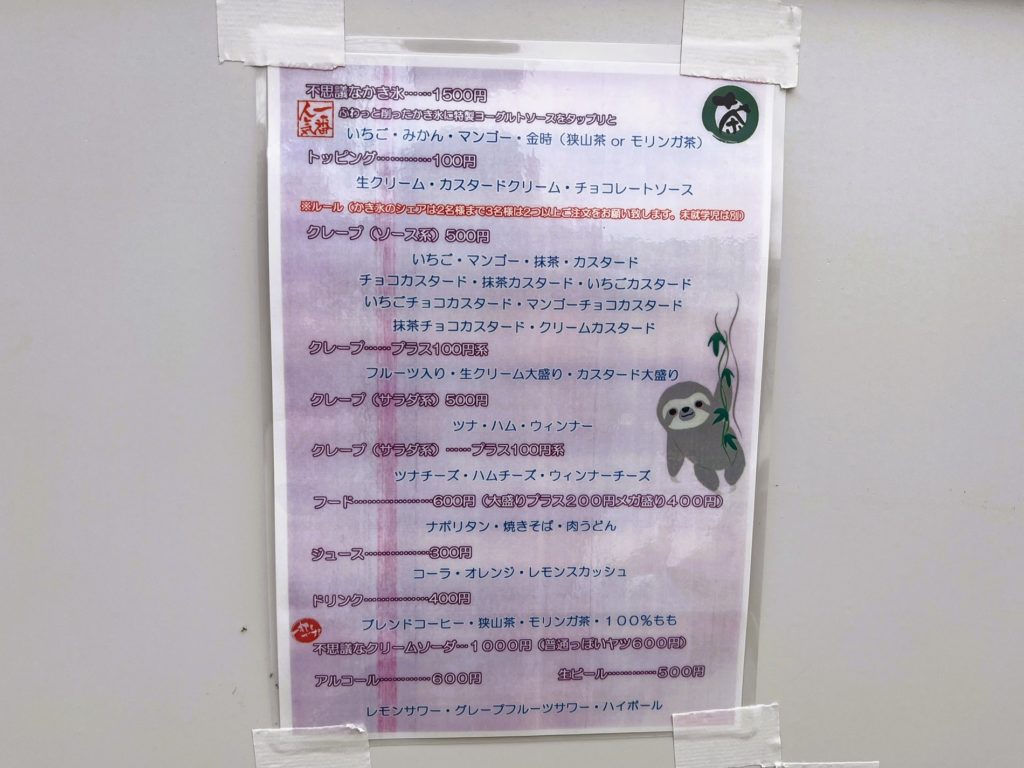 不思議なかき氷……1500円
一番人気
ふわっと削ったかき氷に特製ヨーグルトソースをタップリと
いちご・みかん・マンゴー・金時（狭山茶 or モリンガ茶）
茶
トッピング…………100円
生クリーム・カスタードクリーム・チョコレートソース
※ルール（かき氷のシェアは2名様まで3名様は2つ以上ご注文をお願い致します。未就学児は別）
クレープ（ソース系）500円
いちご・マンゴー・抹茶・カスタード
チョコカスタード・抹茶カスタード・いちごカスタード
いちごチョコカスタード・マンゴーチョコカスタード
抹茶チョコカスタード・クリームカスタード
クレープ……プラス100円系
フルーツ入り・生クリーム大盛り・カスタード大盛り
クレープ（サラダ系）500円
ツナ・ハム・ウィンナー
クレープ（サラダ系）……プラス100円系
ツナチーズ・ハムチーズ・ウィンナーチーズ
フード………………600円（大盛りプラス２００円メガ盛り４００円）
ナポリタン・焼きそば・肉うどん
ジュース……………300円
コーラ・オレンジ・レモンスカッシュ
ドリンク……………400円
ブレンドコーヒー・狭山茶・モリンガ茶・１００％もも
不思議なクリームソーダ…１０００円（普通っぽいヤツ６００円）
アルコール…………６００円
生ビール…………５００円
レモンサワー・グレープフルーツサワー・ハイボール